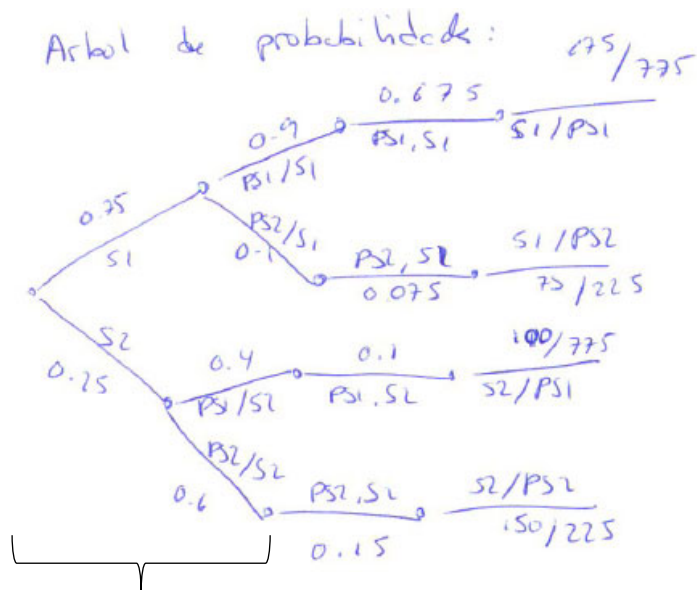 Arbol de probabilidade:
0.75
S1
0.9
PS1/S1
0.675
PS1, S1
675/775
S1/PS1
PS2/S1
0.1
PS2, S1
0.075
S1/PS2
75/225
S2
0.25
0.4
PS1/S2
0.1
PS1, S2
100/775
S2/PS1
PS2/S2
0.6
PS2, S2
0.15
S2/PS2
150/225